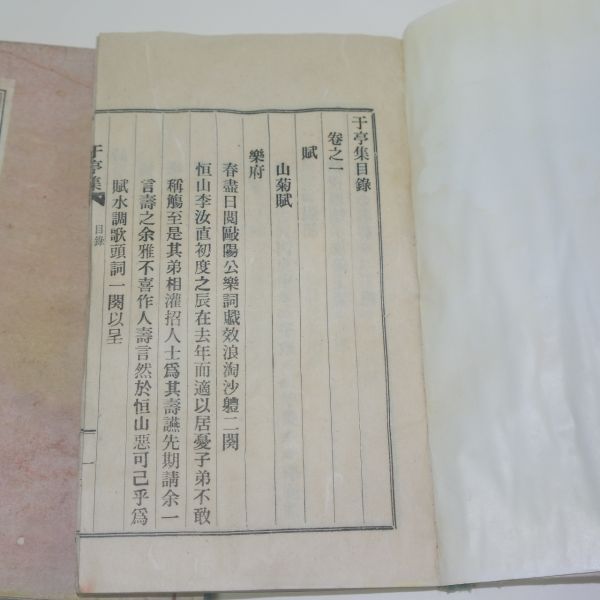 于亭集目錄
卷之一
賦
山菊賦
樂府
春盡日閱歐陽公樂詞戱效浪淘沙軆二闋
恒山李汝直初度之辰在去年而適以居憂子弟不敢
稱觴至是其弟相灌招人士爲其壽讌先期請余一
言壽之余雅不喜作人壽言然於恒山惡可已乎爲
賦水調歌頭詞一闋以呈
于亭集 目錄 一